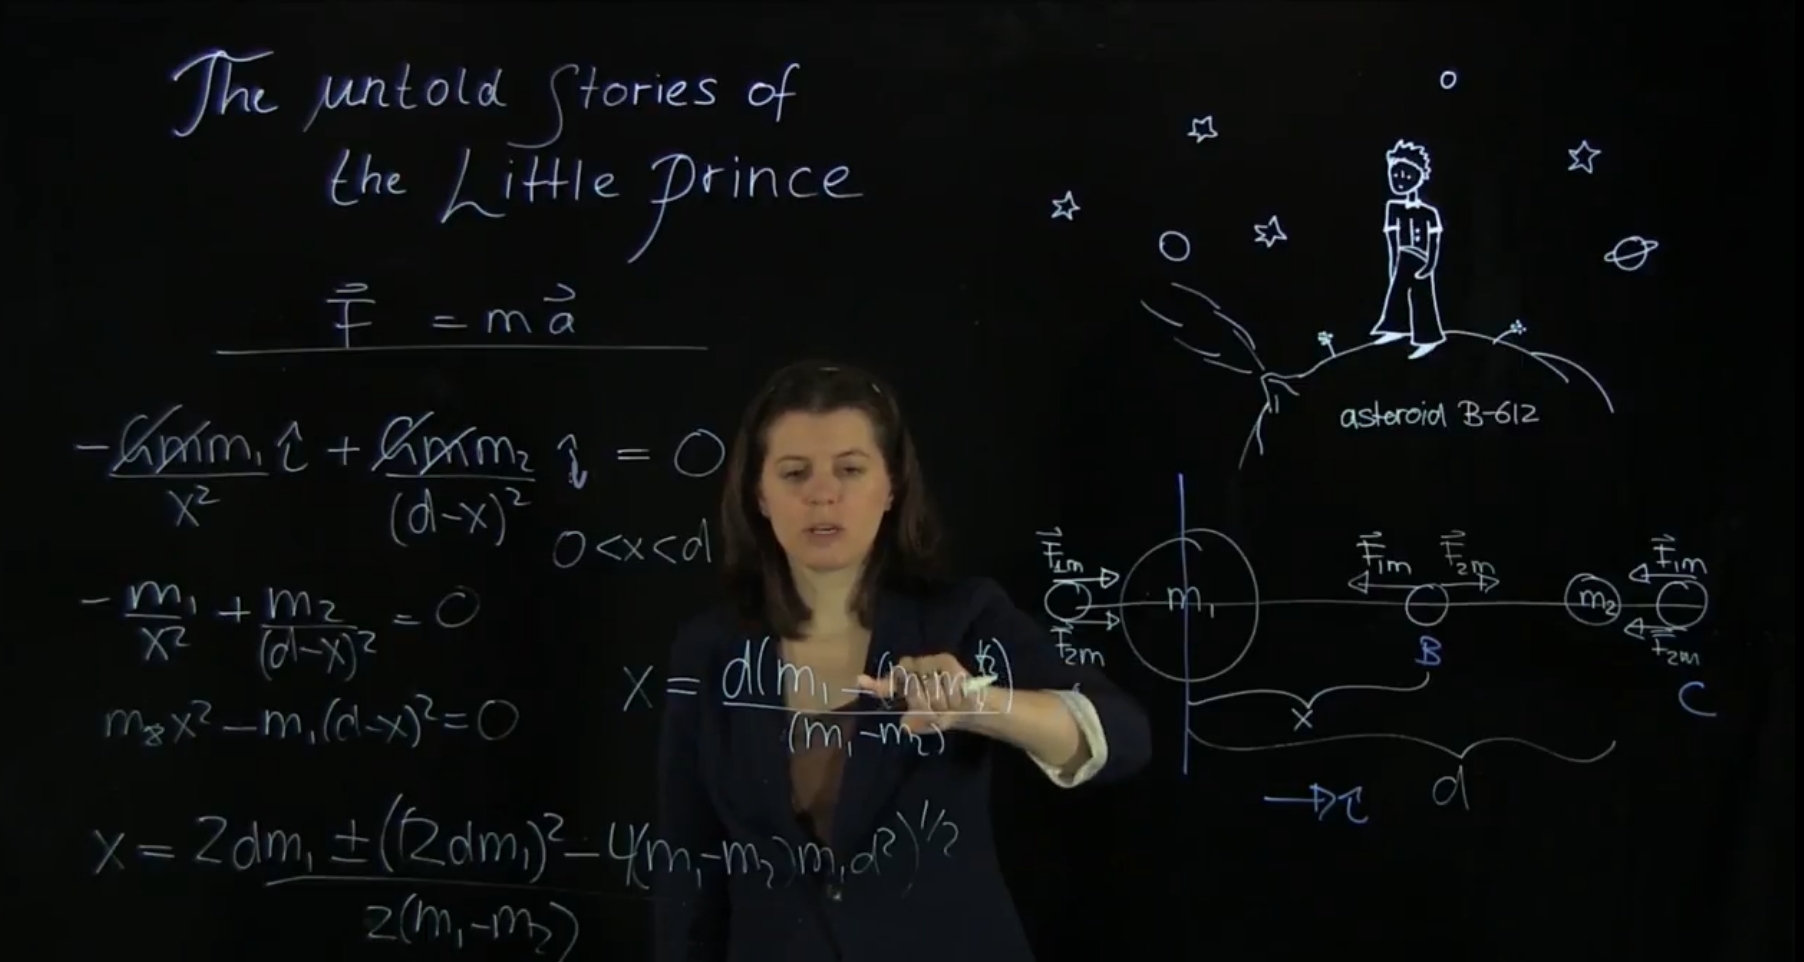 The untold Stories of
the Little prince
F⃗ = ma⃗
-Gmm₁/x² î + Gmm₂/(d-x)² î = 0
0<x<d
-m₁/x² + m₂/(d-x)² = 0
m₂x² - m₁(d-x)² = 0
x = d(m₁ - (m₁m₂)^1/2)/(m₁-m₂)
x = 2dm₁ ± ((2dm₁)² - 4(m₁-m₂)m₁d²)^1/2/2(m₁-m₂)
asteroid B-612
F⃗1m
F⃗2m
m₁
F⃗1m F⃗2m
B
m₂
F⃗1m
F⃗2m
C
x
d
î